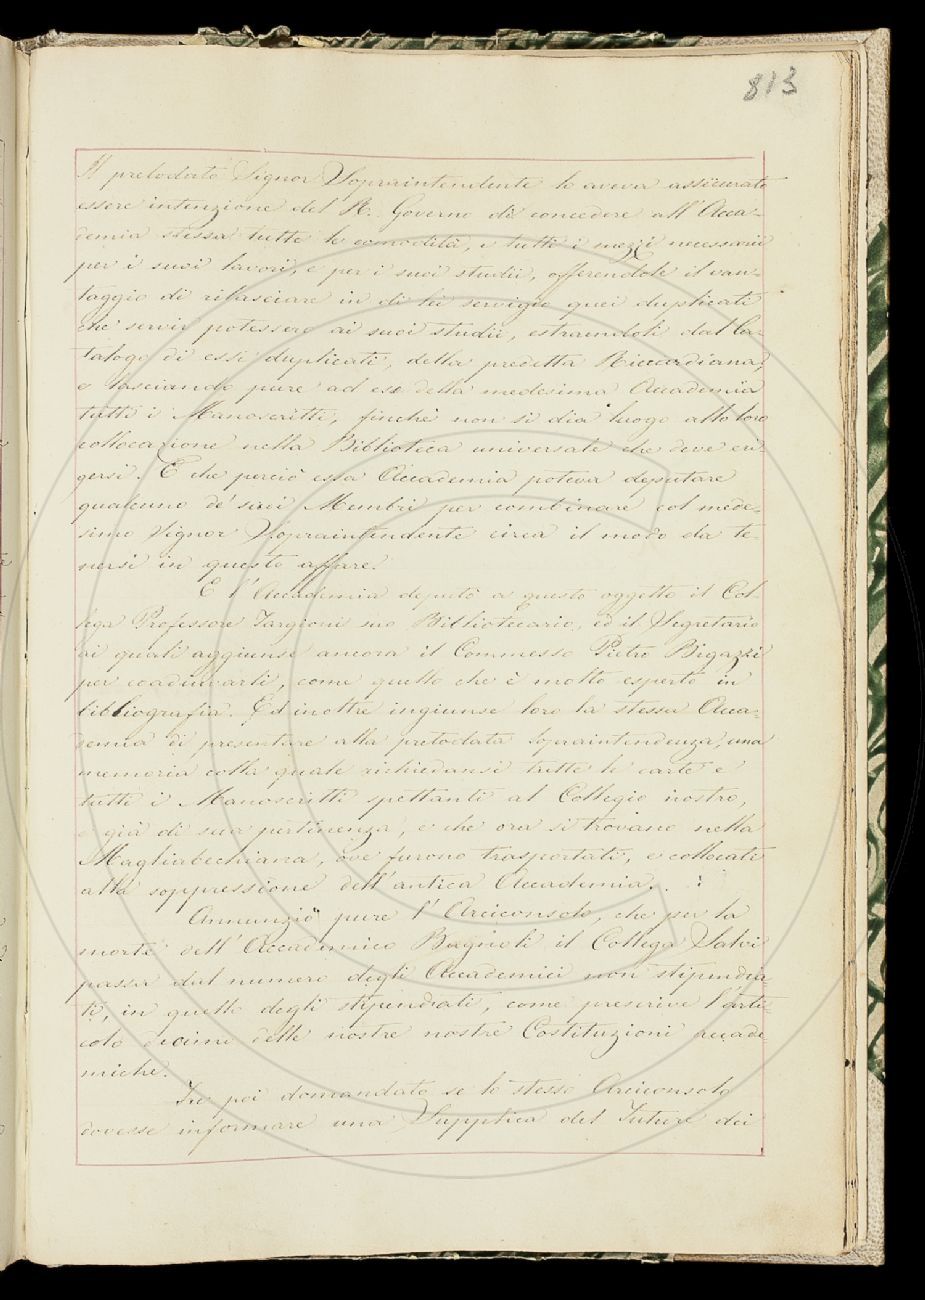 813
Il prelodato Signor Sopraintendente lo aveva assicurato
essere intenzione del R. Governo di concedere all'Acca=
demia stessa tutte le comodità, e tutti i mezzi necessarii
per i suoi lavori, e per i suoi studii, offerendole il van=
taggio di rilasciare in di lei servigio quei duplicati
che servir potessero ai suoi studii, estraendoli dal Ca=
talogo di essi duplicati, della predetta Riccardiana,
e lasciando pure ad uso della medesima Accademia
tutti i Manoscritti, finchè non si dia luogo alla loro
collocazione nella Biblioteca universale che deve eri=
gersi. E che perciò essa Accademia poteva deputare
qualcuno de' suoi Membri per combinare col mede=
simo Signor Sopraintendente circa il modo da te=
nersi in questo affare.
E l'Accademia deputò a questo oggetto il Col=
lega Professore Targioni suo Bibliotecario, ed il Segretario
ai quali aggiunse ancora il Commesso Pietro Bigazzi
per coadiuvarli, come quello che è molto esperto in
bibliografia. Ed inoltre ingiunse loro la stessa Acca=
demia di presentare alla prelodata Sopraintendenza, una
memoria colla quale richiedansi tutte le carte e
tutti i Manoscritti spettanti al Collegio nostro,
e già di sua pertinenza, e che ora si trovano nella
Magliabechiana, ove furono trasportati, e collocati
alla soppressione dell'antica Accademia.
Annunziò pure l'Arciconsolo, che per la
morte dell'Accademico Bagnoli il Collega Salvi
passa dal numero degli Accademici non stipendia=
ti, in quello degli stipendiati, come prescrive l'arti=
colo decimo delle nostre nostre Costituzioni accade
miche.
Fu poi domandato se lo stesso Arciconsolo
dovesse informare una Supplica del Tutore dei